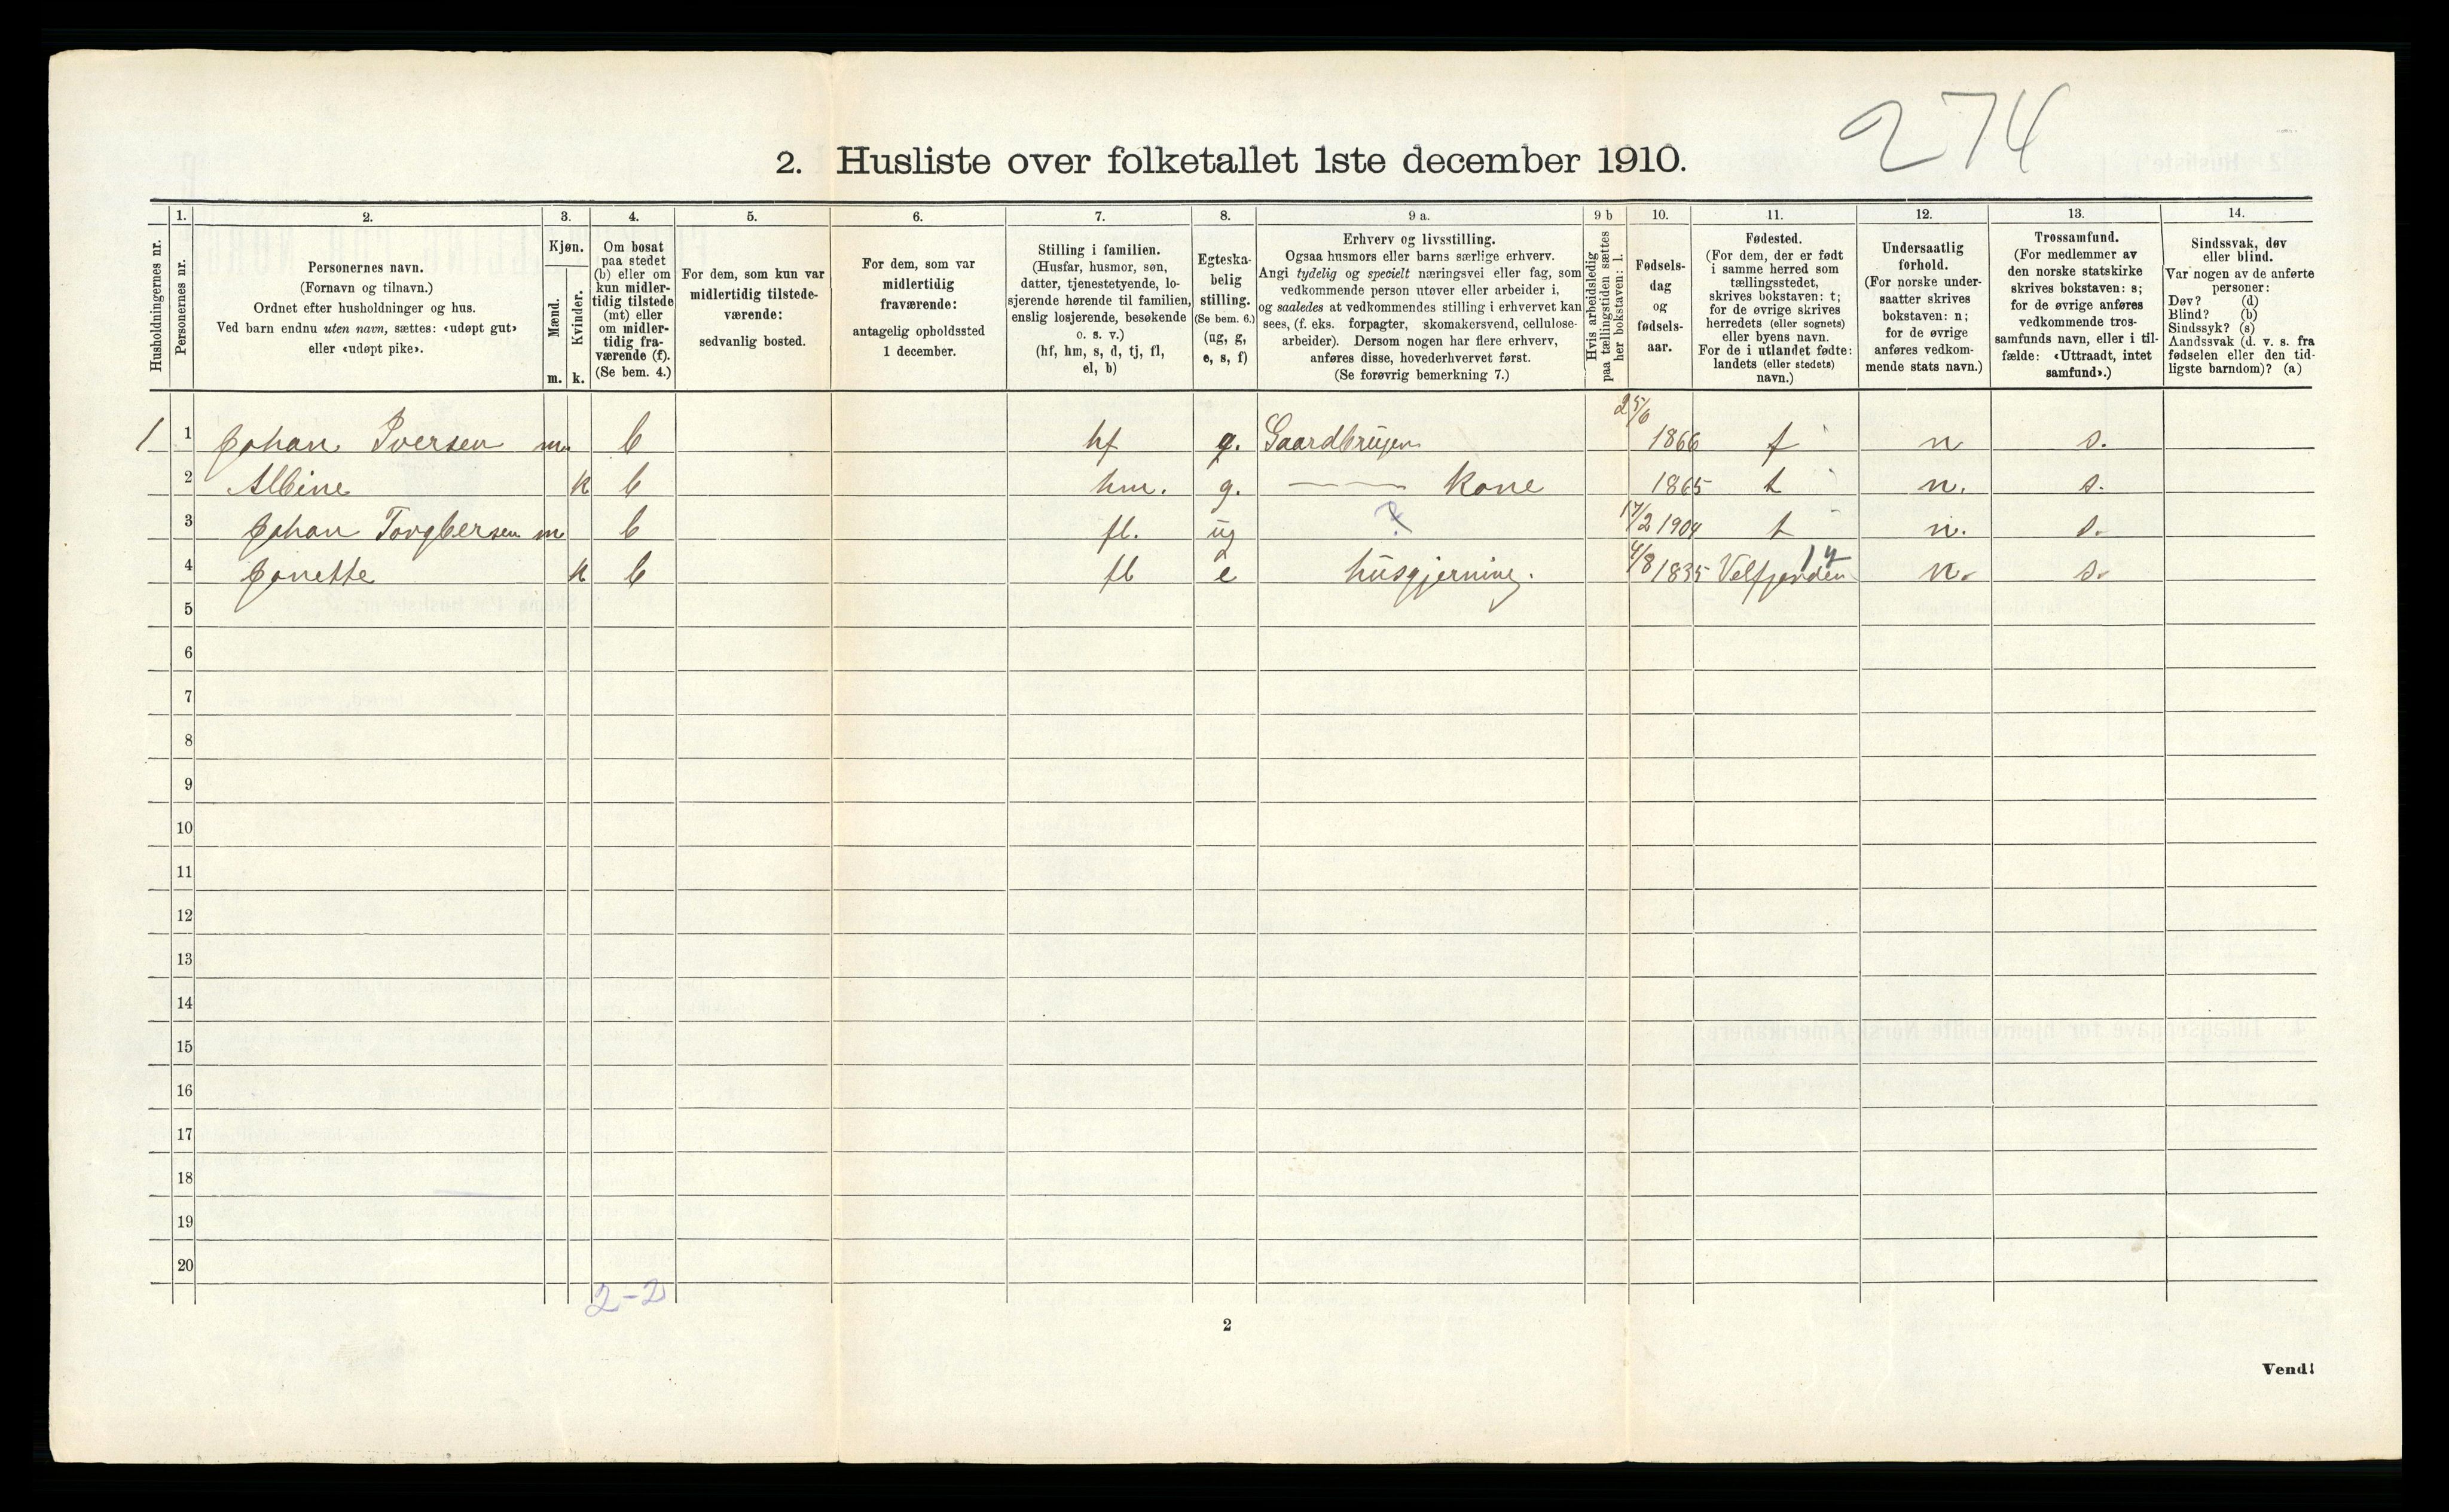 274
2. Husliste over folketallet 1ste december 1910.
Husholdningernes nr.
1.
Personernes nr.
2.
Personernes navn.
(Fornavn og tilnavn.)
Ordnet efter husholdninger og hus.
Ved barn endnu uten navn, sættes: «udøpt gut»
eller «udøpt pike».
3.
Kjøn.
Mænd.
m.
Kvinder.
k.
4.
Om bosat
paa stedet
(b) eller om
kun midler-
tidig tilstede
(mt) eller
om midler-
tidig fra-
værende (f).
(Se bem. 4.)
5.
For dem, som kun var
midlertidig tilstede-
værende:
sedvanlig bosted.
6.
For dem, som var
midlertidig
fraværende:
antagelig opholdssted
1 december.
7.
Stilling i familien.
(Husfar, husmor, søn,
datter, tjenestetyende, lo-
sjerende hørende til familien,
enslig losjerende, besøkende
o. s. v.)
(hf, hm, s, d, tj, fl,
el, b)
8.
Egteska-
belig
stilling.
(Se bem. 6.)
(ug, g,
e, s, f)
9 a.
Erhverv og livsstilling.
Ogsaa husmors eller barns særlige erhverv.
Angi tydelig og specielt næringsvei eller fag, som
vedkommende person utøver eller arbeider i,
og saaledes at vedkommendes stilling i erhvervet kan
sees, (f. eks. forpagter, skomakersvend, cellulose-
arbeider). Dersom nogen har flere erhverv,
anføres disse, hovederhvervet først.
(Se forøvrig bemerkning 7.)
9 b
Hvis arbeidsledig
paa tællingstiden sættes
her bokstaven: l.
10.
Fødsels-
dag
og
fødsels-
aar.
11.
Fødested.
(For dem, der er født
i samme herred som
tællingsstedet,
skrives bokstaven: t;
for de øvrige skrives
herredets (eller sognets)
eller byens navn.
For de i utlandet fødte:
landets (eller stedets)
navn.)
12.
Undersaatlig
forhold.
(For norske under-
saatter skrives
bokstaven: n;
for de øvrige
anføres vedkom-
mende stats navn.)
13.
Trossamfund.
(For medlemmer av
den norske statskirke
skrives bokstaven: s;
for de øvrige anføres
vedkommende tros-
samfunds navn, eller i til-
fælde: «Uttraadt, intet
samfund».)
14.
Sindssvak, døv
eller blind.
Var nogen av de anførte
personer:
Døv? (d)
Blind? (b)
Sindssyk? (s)
Aandssvak (d. v. s. fra
fødselen eller den tid-
ligste barndom)? (a)
1 1 Johan Iversen m. b hf g. Gaardbruger 25/6 1866 t n s.
2 Albine k b hm. g. — — Kone 1865 t n. s.
3 Johan Torgbersen m b fl. ug ? 17/2 1904 t n. s.
4 Jonette k b fl e husgjerning. 4/8 1835 Velfjorden n. s.
5
6
7
8
9
10
11
12
13
14
15
16
17
18
19
20
2-2
2
Vend!